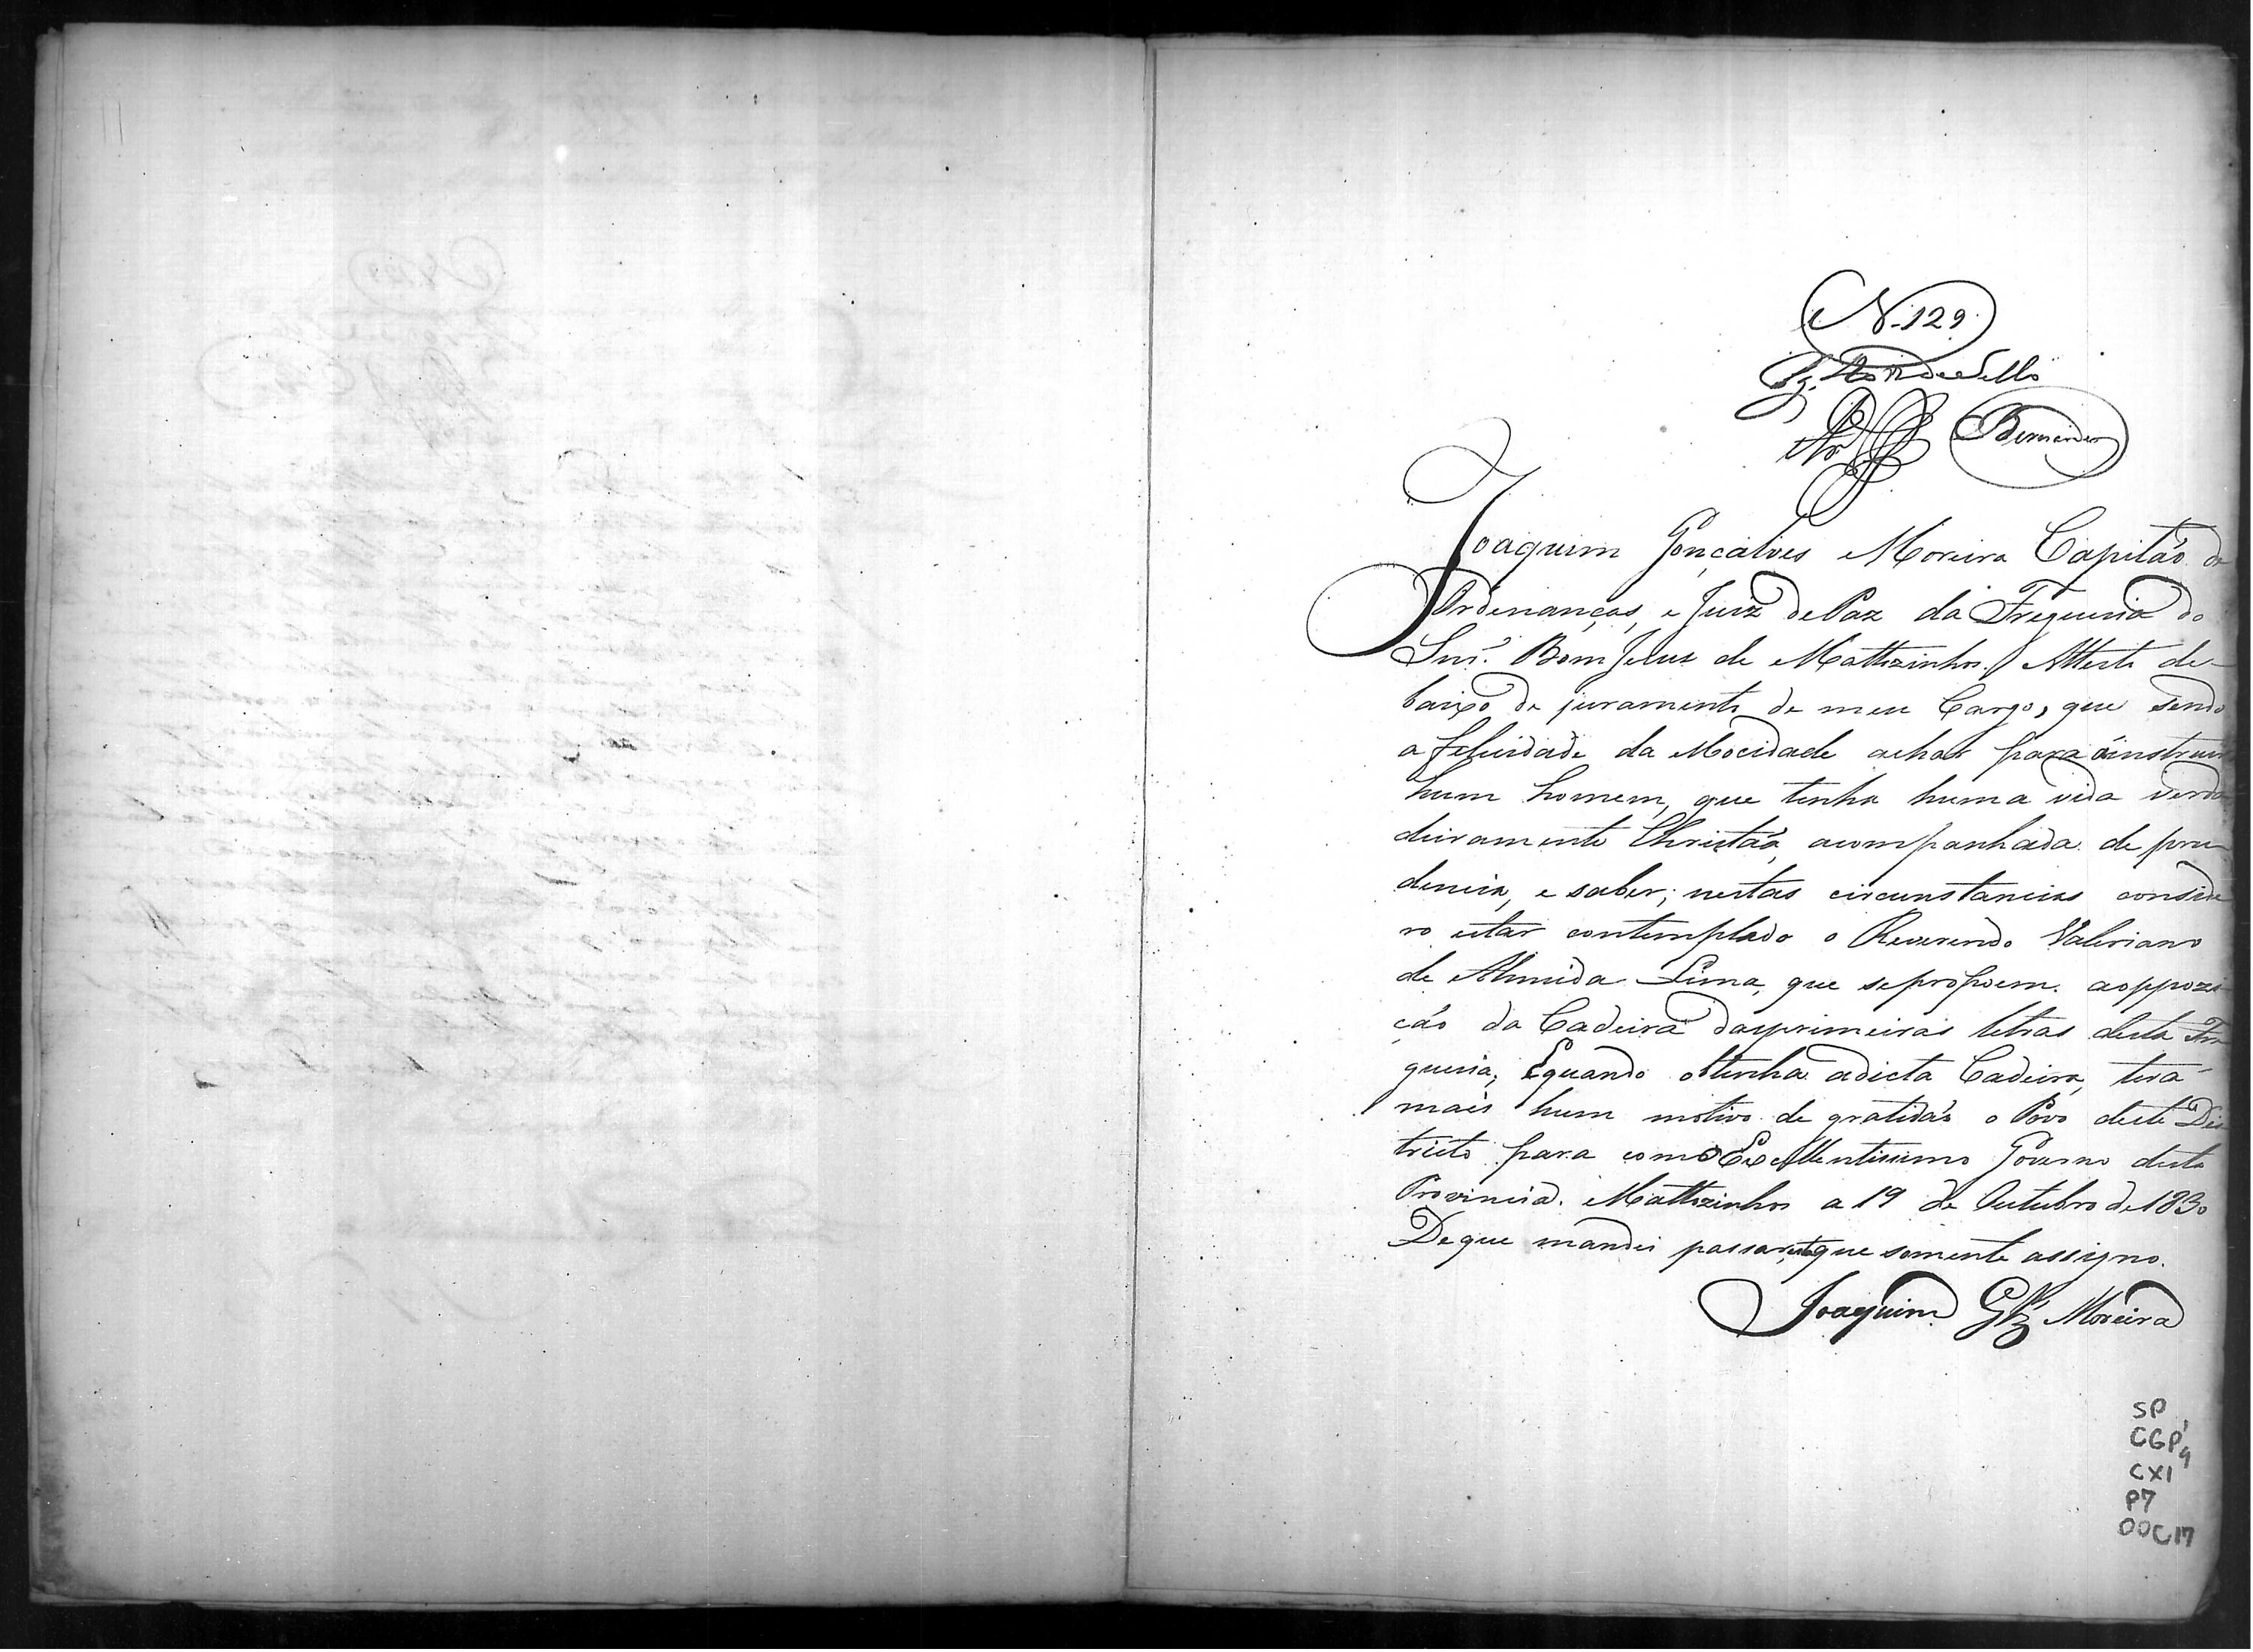 N. 129
Pg. de Sello
Joaquim Gonçalves Moreira Capitão de
Ordenanças, e Juiz de Paz da Freguesia do
Snr. Bom Jesus de Mattozinhos. Attesto de-
baixo de juramento de meu Cargo, que sendo
a felicidade da Mocidade achar para instruir
hum homem, que tenha huma vida verda
deiramente Christãa, acompanhada de pru-
dencia, e saber; nestas circunstancias conside
ro estar contemplado o Reverendo Valeriano
de Almeida Lima, que sepropoem. aoppozi
ção da Cadeira dasprimeiras letras desta Fre
guesia; Equando obtenha adicta Cadeira, terá
mais hum motivo de gratidão o Povo deste Dis
tricto para com o Excellentissimo Governo desta
Provincia. Mattozinhos a 19 de Outubro de 1830
De que mandei passar, esta que somente assigno.
Joaquim Glz Moreira
SP
CGP 1
4
CX1
P7
DOC17